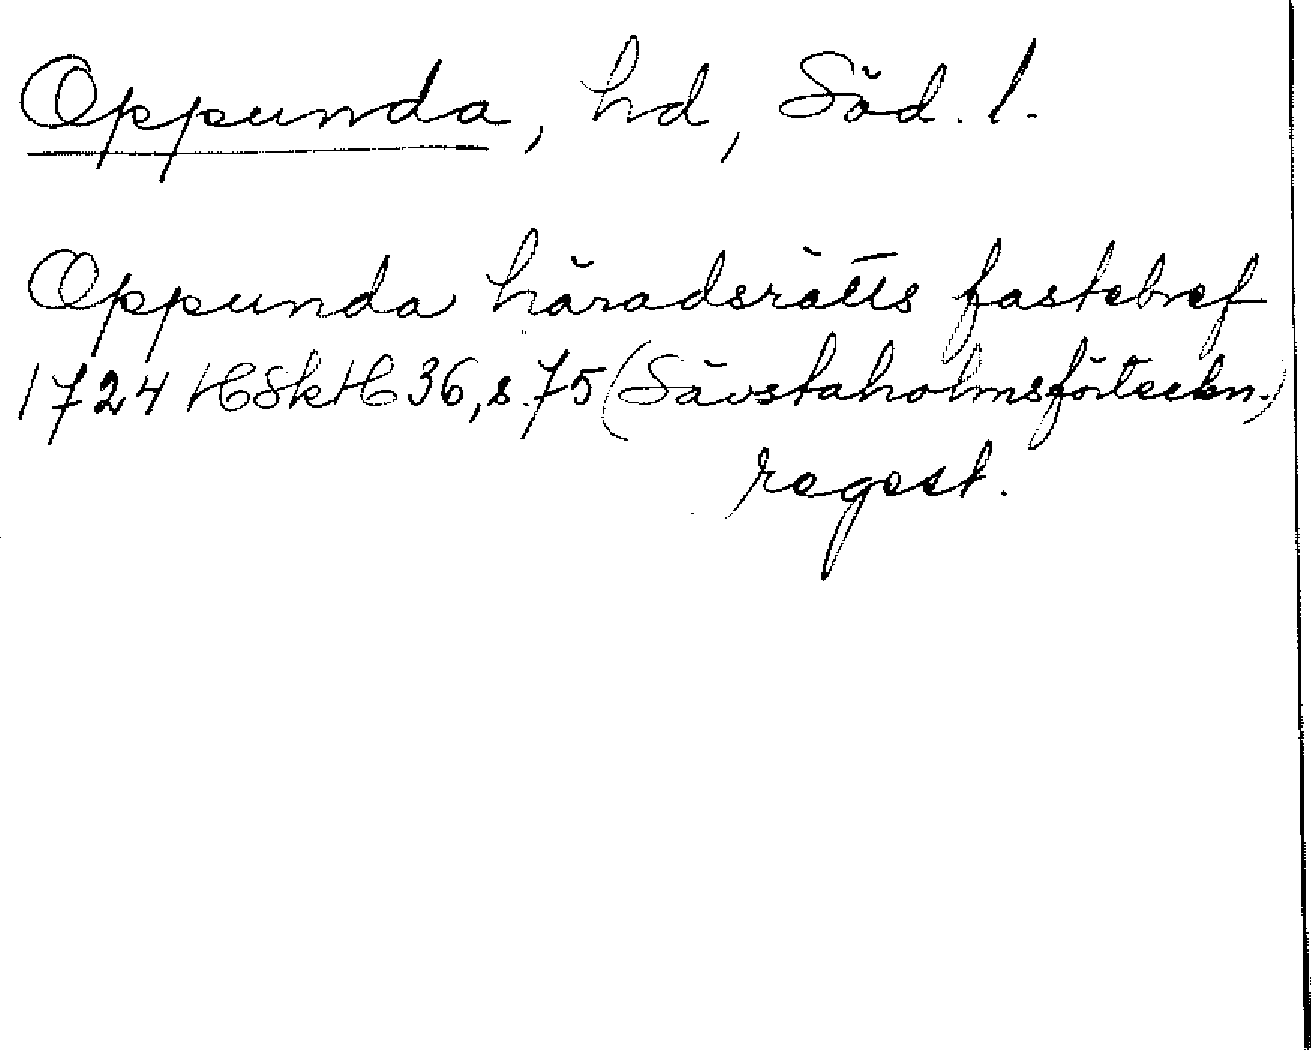 Oppunda, hd, Söd. l.
Oppunda häradsrätts fastebref
1724 HSkH 36, s. 75 (Sävstaholmsförteckn.)
regest.